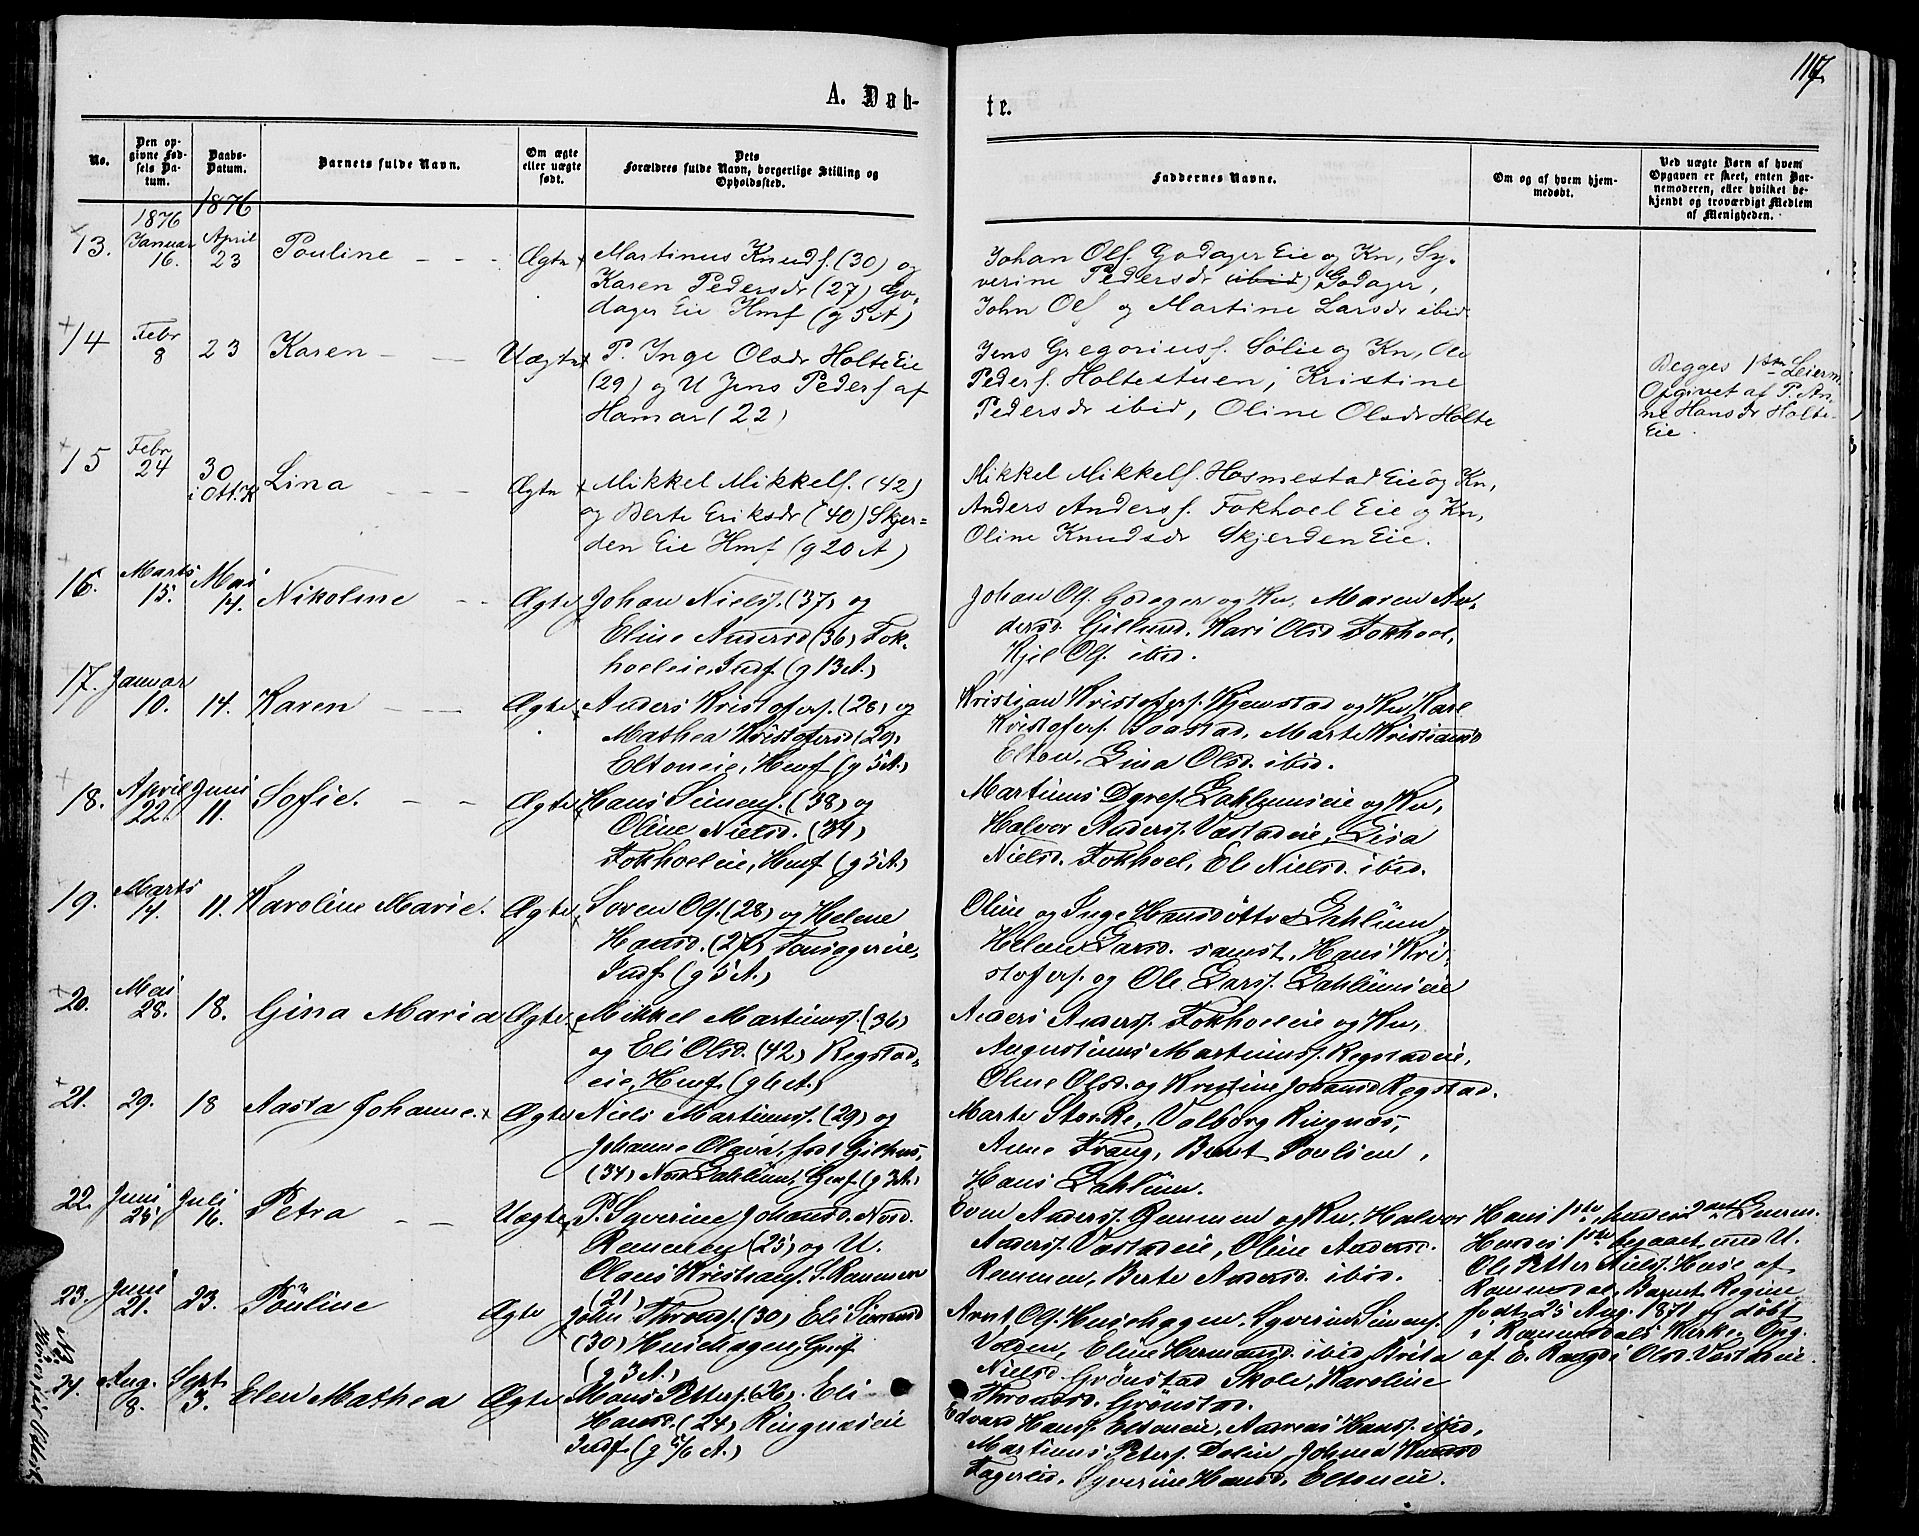 117
A. Dab-
te.
No.
Den op-
givne Fød-
sels Da-
tum.
Daabs-
Datum.
Barnets fulde Navn.
Om ægte
eller uægte
født.
Dets
Forældres fulde Navn, borgerlige Stilling og
Opholdssted.
Faddernes Navne.
Om og af hvem hjem-
medøbt.
Ved uægte Børn af hvem
Opgaven er skeet, enten Bar-
nemoderen, eller hvilket be-
kjendt og troværdigt Medlem
af Menigheden.
1876 1876
13. Januar 16. April 23 Pouline Ægte Martinus Knuds. (30) og
Karen Pedersdr (27) Go-
dager Eie Hmf (g 5 A)
Johan Ols. Godager Eie og Kn, Sy-
verine Pedersdr (ibid) Godager,
John Ols og Martine Larsdr ibid
14 Febr 8 23 Karen Uægte P. Inge Olsdr Holte Eie
(29) og U Jens Peders af
Hamar (22)
Jens Gregoriuss. Sølie og Kn, Ole
Peders. Holtestuen, Kristine
Pedersdr ibid, Oline Olsdr Holte
Begges 1ste Leierm.
Opgivet af P. An-
ne Hansdr Holte-
Eie.
15 Febr 24 30 i Ott. K Lina Ægte Mikkel Mikkels. (42)
og Berte Eriksdr (40) Skjer=
den Eie Hmf (g 20 A)
Mikkel Mikkels. Hosmestad Eie og Kn,
Anders Anders. Fokhoel Eie og Kn,
Oline Knudsdr Skjerden Eie.
16. Marts 15. Mai 14. Nikoline Ægte Johan Niels. (37) og
Eline Andersd (36) Fok-
hoeleie, Indf. (g 13 A.)
Johan Ols. Godager og Kn, Maren An-
dersd. Gillund, Kari Olsd Fokhoel,
Kjel Ols. ibid.
17. Januar 10. 14. Karen Ægte Anders Kristofers. (28) og
Mathea Kristofersd (29)
Eltoneie, Hmf (g 5 A.)
Kristian Kristofers. Kjemstad og Kn, Kare
Kristofers. Baastad, Marte Kristiansd
Elton, Lina Olsd. ibid.
18. April 22. Juni 11. Sofie. Ægte Hans Simens. (38) og
Oline Nielsd. (34)
Fokhoeleie, Hmf (g 5 A)
Martinus Dyres. Dahlumseie og Kn,
Halvor Anders. Vestadeie, Lisa
Nielsd. Fokhoel, Ele Nielsd. ibid.
19. Marts 14. 11. Karoline Marie. Ægte Soren Ols. (28) og Helene
Hansd. (27) Tonsagereie,
Indf (g 5 A.)
Oline og Inge Hansdøttre Dahlum,
Helene Larsd. samst, Hans Kri-
stofers. og Ole Lars. Dahlumseie
20. Mai 28. 18. Gina Maria Ægte Mikkel Martinus. (36)
og Eli Olsd. (42) Regstad-
eie, Hmf. (g 6 A.)
Anders Anders. Fokhoeleie og Kn,
Augustinus Martinuss. Regstadeie,
Oline Olsd. og Kristine Johansd Regstad.
21. 29. 18 Aasta Johanne. Ægte Niels Martinus. (29) og
Johanne Olava, født Gilhus,
(34) Nord Dahlum, Gmf. (g 3 A.)
Marte Storke, Valborg Ringnes,
Anne Frang, Bernt Poulsen,
Hans Dahlum.
22. Juni 25 Juli 16. Petra Uægte P. Syverine Johansd. Nord.
Remmen (25) og U.
Olaus Kristians. S. Remmen
(21)
Even Anders. Remmen og Kn, Halvor
Anders. Vestadeie, Oline Andersd.
Remmen, Berte Andersd. ibid.
Hans 1ste, hendes 2det Leierm.
Hendes 1ste begaaet med U.
Ole Petter Niels. Huse af
Romsdal, Barnet Regine
født 25 Aug. 1871 og døbt
i Romsdals Kirke, Opg.
af E. Ragdi Olsd. Vestadeie.
23. Juni 21. 23. Pauline Ægte John Thronds. (30) Eli Simensd
(30) Husehagen, Gmf
(g 3 A.)
Arnt Ols. Husehagen, Syverin Simens.
Volden, Eline Hermansd. ibid, Brita
Nielsd. Grønstad Skole, Karoline
Throndsd. Grønstad.
24. Aug. 8. Sept. 3. Elen Mathea Ægte Mons Petters. (26). Eli
Hansd. (24) Ringneseie
Indf (g 5/6 A.)
Edvard Hans. Eltoneie, Andreas Hans. ibid,
Martinus Peters. Dolin, Johana Knudsd
Fagerlid, Syverine Hansd, Eltoneie.